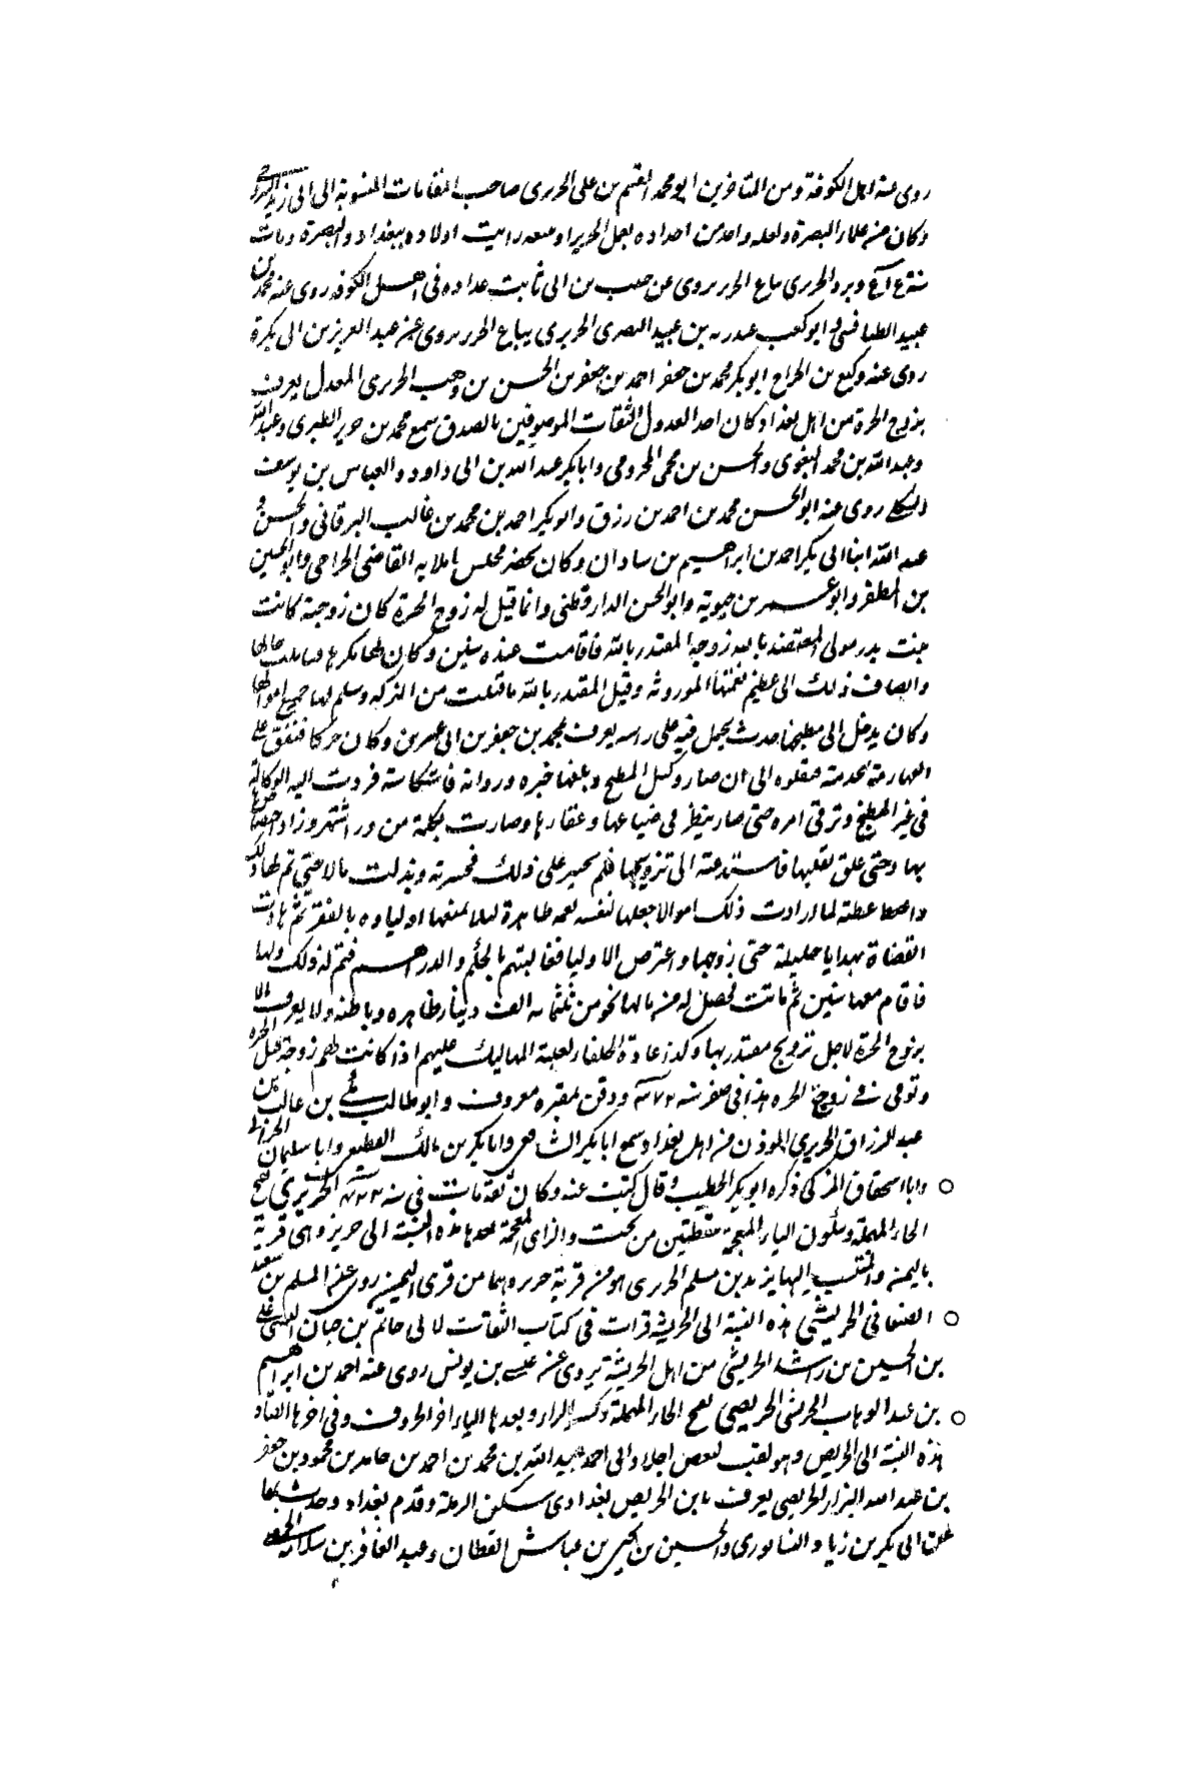 روى عنه اهل الكوفة ومن المتاخرين ابو محمد القسم بن على الحريرى صاحب المقامات المنسوبة الى ابى زيد السروجى
وكان من علماء البصرة ولعله واحد من اجداده يعمل الحرير او يبيعه رايت اولاده ببغداد والبصرة ومات
وبرد الحريرى بياع الحرير يروى عن حبيب بن ابى ثابت عداده فى اهل الكوفه روى عنه محمد بن
عبيد الطنافسى وابو كعب عبد ربه بن عبيد البصرى الحريرى بياع الحرير يروى عن عبد العزيز بن ابى بكرة
روى عنه وكيع بن الجراح ابو بكر محمد بن جعفر احمد بن جعفر بن الحسن بن وهب الحريرى المعدل يعرف
بزوج الحرة من اهل بغداد كان احد العدول الثقات الموصوفين بالصدق سمع محمد بن جرير الطبرى
وعبد الله بن محمد البغوى والحسن بن محمى المخرومى وابا بكر عبد الله بن ابى داود والعباس بن يوسف
الشكلى روى عنه ابو الحسن محمد بن احمد بن رزق وابو بكر احمد بن محمد بن غالب البرقانى والحسن و
عبد الله ابنا ابى بكر احمد بن ابراهيم بن شاذان وكان يحضر مجلس املايه القاضى الجراحى وابو الحسين
بن المظفر وابو عمر بن حيوية وابو الحسن الدارقطنى وانما قيل له زوج الحرة كان زوجته كانت
بنت بدر مولى المعتضد بالله زوجة المقتدر بالله فاقامت عنده سنين وكان لها مكرما
وانضاف ذلك الى عظيم نعمتها الموروثه وقتل المقتدر بالله فافلتت من النكبه وسلم لها جميع اموالها
وكان يدخل الى مطبخها حدث يحمل فيه على راسه يعرف بمحمد بن جعفر بن ابى عمر بن وكان حركا فنفق على
القهارمة بخدمته فنقلوه الى ان صار وكيل المطبخ وبلغها خبره وراته فاستكاسته فردت اليه الوكالة
فى غير المطبخ وترقى امره حتى صار ينظر فى ضياعها وعقارها وصارت تكلمه من ورا ستر وزاد اختصاصه
بها وحتى علق بقلبها فاستدعته الى تزويجها فلم يجسر على ذلك فجسرته وبذلت مالا حتى تم لها ذلك
واعطته لما ارادت ذلك اموالا جعلها لنفسه نعمه ظاهرة ليلا يمنعها اولياوه بالفقر ثم هادت
القضاة بهدايا جليلة حتى زوجها واعترض الاوليا فغالبتهم بالحكم والدراهم فتم له ذلك ولها
فاقام معها سنين ثم ماتت فحصل له من مالها نحو من ثلثمايه الف دينار ظاهره وباطنه ولا يعرف الا
بزوج الحرة لاجل تزويج مقتدر بها وكذا عادة الخلفاء لغلبة المماليك عليهم اذا كانت لهم زوجة قيل الحرة
وتوفى زوج الحره هذا فى صفر سنه ودفن بمقبره معروف وابو طالب على بن غالب بن
عبد الرزاق الحريرى الموذن من اهل بغداد سمع ابا بكر الشافعى وابا بكر بن مالك القطيعى وابا سليمان الحرانى
وابا اسحاق المزكى ذكره ابو بكر الخطيب وقال كتبت عنه وكان ثقة مات فى سنه الحريزى بفتح
الحاء المهملة وسكون الياء المعجمة بنقطتين من تحت والزاى المعجمة بعدها هذه النسبة الى حريز وهى قرية
باليمن والمنتسب اليها يزيد بن مسلم الحريزى هو من قرية حريز وهما من قرى اليمن روى عنه المسلم بن سعيد
الصنعانى الحريشى هذه النسبة الى الحريش قرات فى كتاب الثقات لابى حاتم بن حبان البستى على
بن الحسين بن راشد الحريشى من اهل الحريشة يروى عن عيسى بن يونس روى عنه احمد بن ابراهيم
بن عبد الوهاب الجرشى الحريصى بفتح الحاء المهملة وكسر الراء وبعدها الياء اخر الحروف وفى اخرها الصاد
هذه النسبة الى الحريص وهو لقب لبعض اجداد ابى احمد عبيد الله بن محمد بن احمد بن حامد بن محمود بن جعفر
بن عبد الله البزار الحريصى يعرف بابن الحريص بغدادى سكن الرملة وقدم بغداد وحدث بها
عن ابى بكر بن زياد النيسابورى والحسين بن يحيى بن عياش القطان وعبد الغافر بن سلامه الحمصى